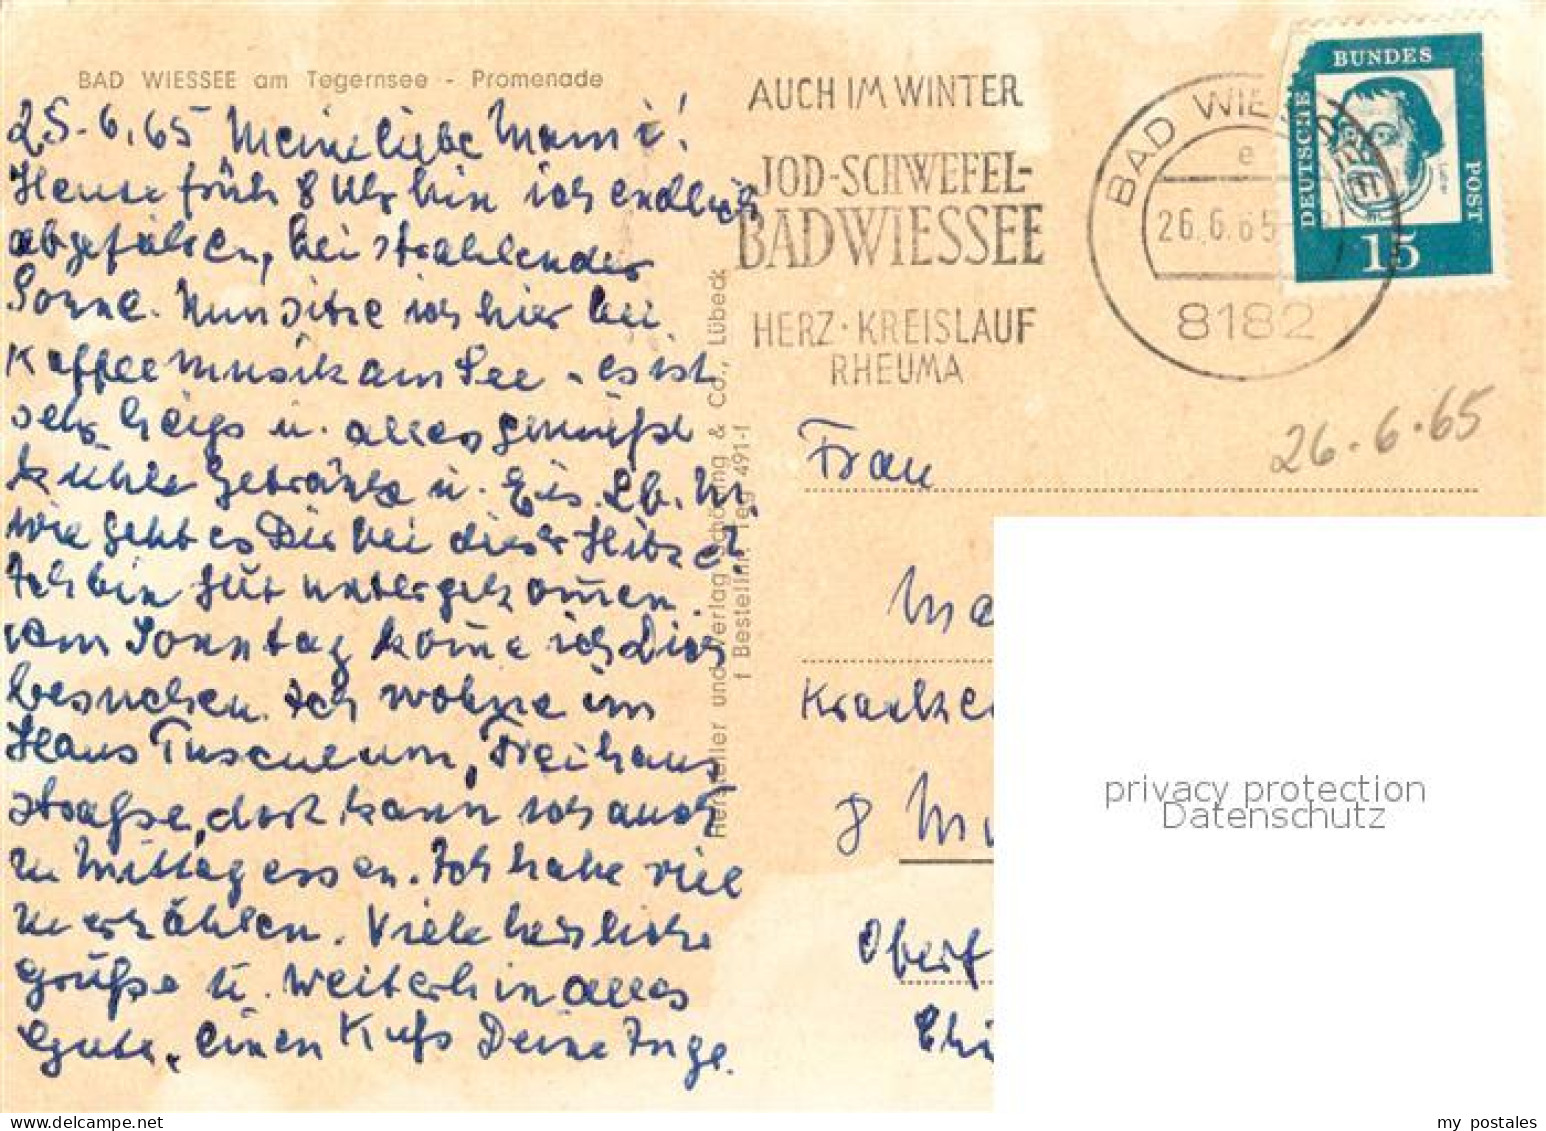 BAD WIESSEE am Tegernsee - Promenade
25.6.65 Meine liebe Mami!
Heute früh 8 Uhr bin ich endlich
abgefahren, bei strahlender
Sonne. Nun sitze ich hier bei
Kaffeemusik am See - es ist
sehr heiß u. alles genießt
kühle Getränke u. Eis. Lb. M.
wie geht es Dir bei dieser Hitze?
Ich bin gut untergekom̄en.
Am Sonntag kom̄e ich Dich
besuchen. Ich wohne im
Haus Tusculum, Freihaus
straße, dort kann ich auch
zu Mittag essen. Ich habe viel
zu erzählen. Viele herzliche
Grüße u. weiterhin alles
Gute, einen Kuß Deine Inge.
Hersteller und Verlag Schöning & Co., Lübeck
f Bestellnr. Teg 491-f
AUCH IM WINTER
JOD-SCHWEFEL-
BAD WIESSEE
HERZ·KREISLAUF
RHEUMA
BAD WIE
e
26.6.65
8182
DEUTSCHE
BUNDES
POST
15
26.6.65
Frau
Ma
Kranken
8 Mü
Oberf
Chi
privacy protection
Datenschutz
my postales